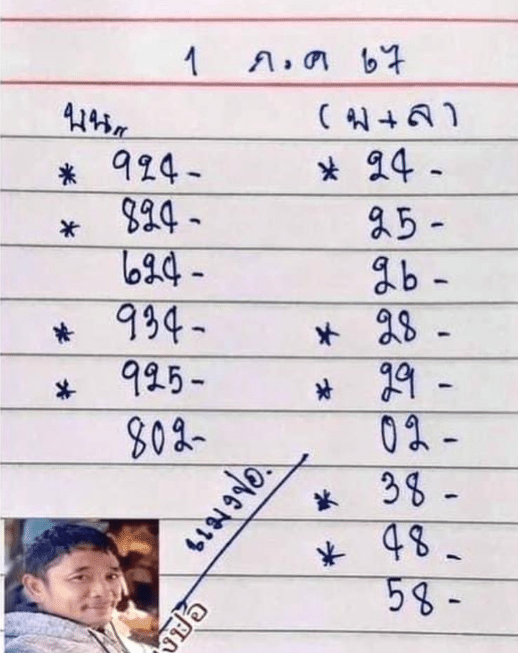 1 ก.ค 67
บน,,
(บ+ล)
* 924-
* 24-
* 824-
25-
624-
26-
* 934-
* 28-
* 925-
* 29-
802-
02-
* 38-
* 48-
58-
แมงปอ.
งปอ